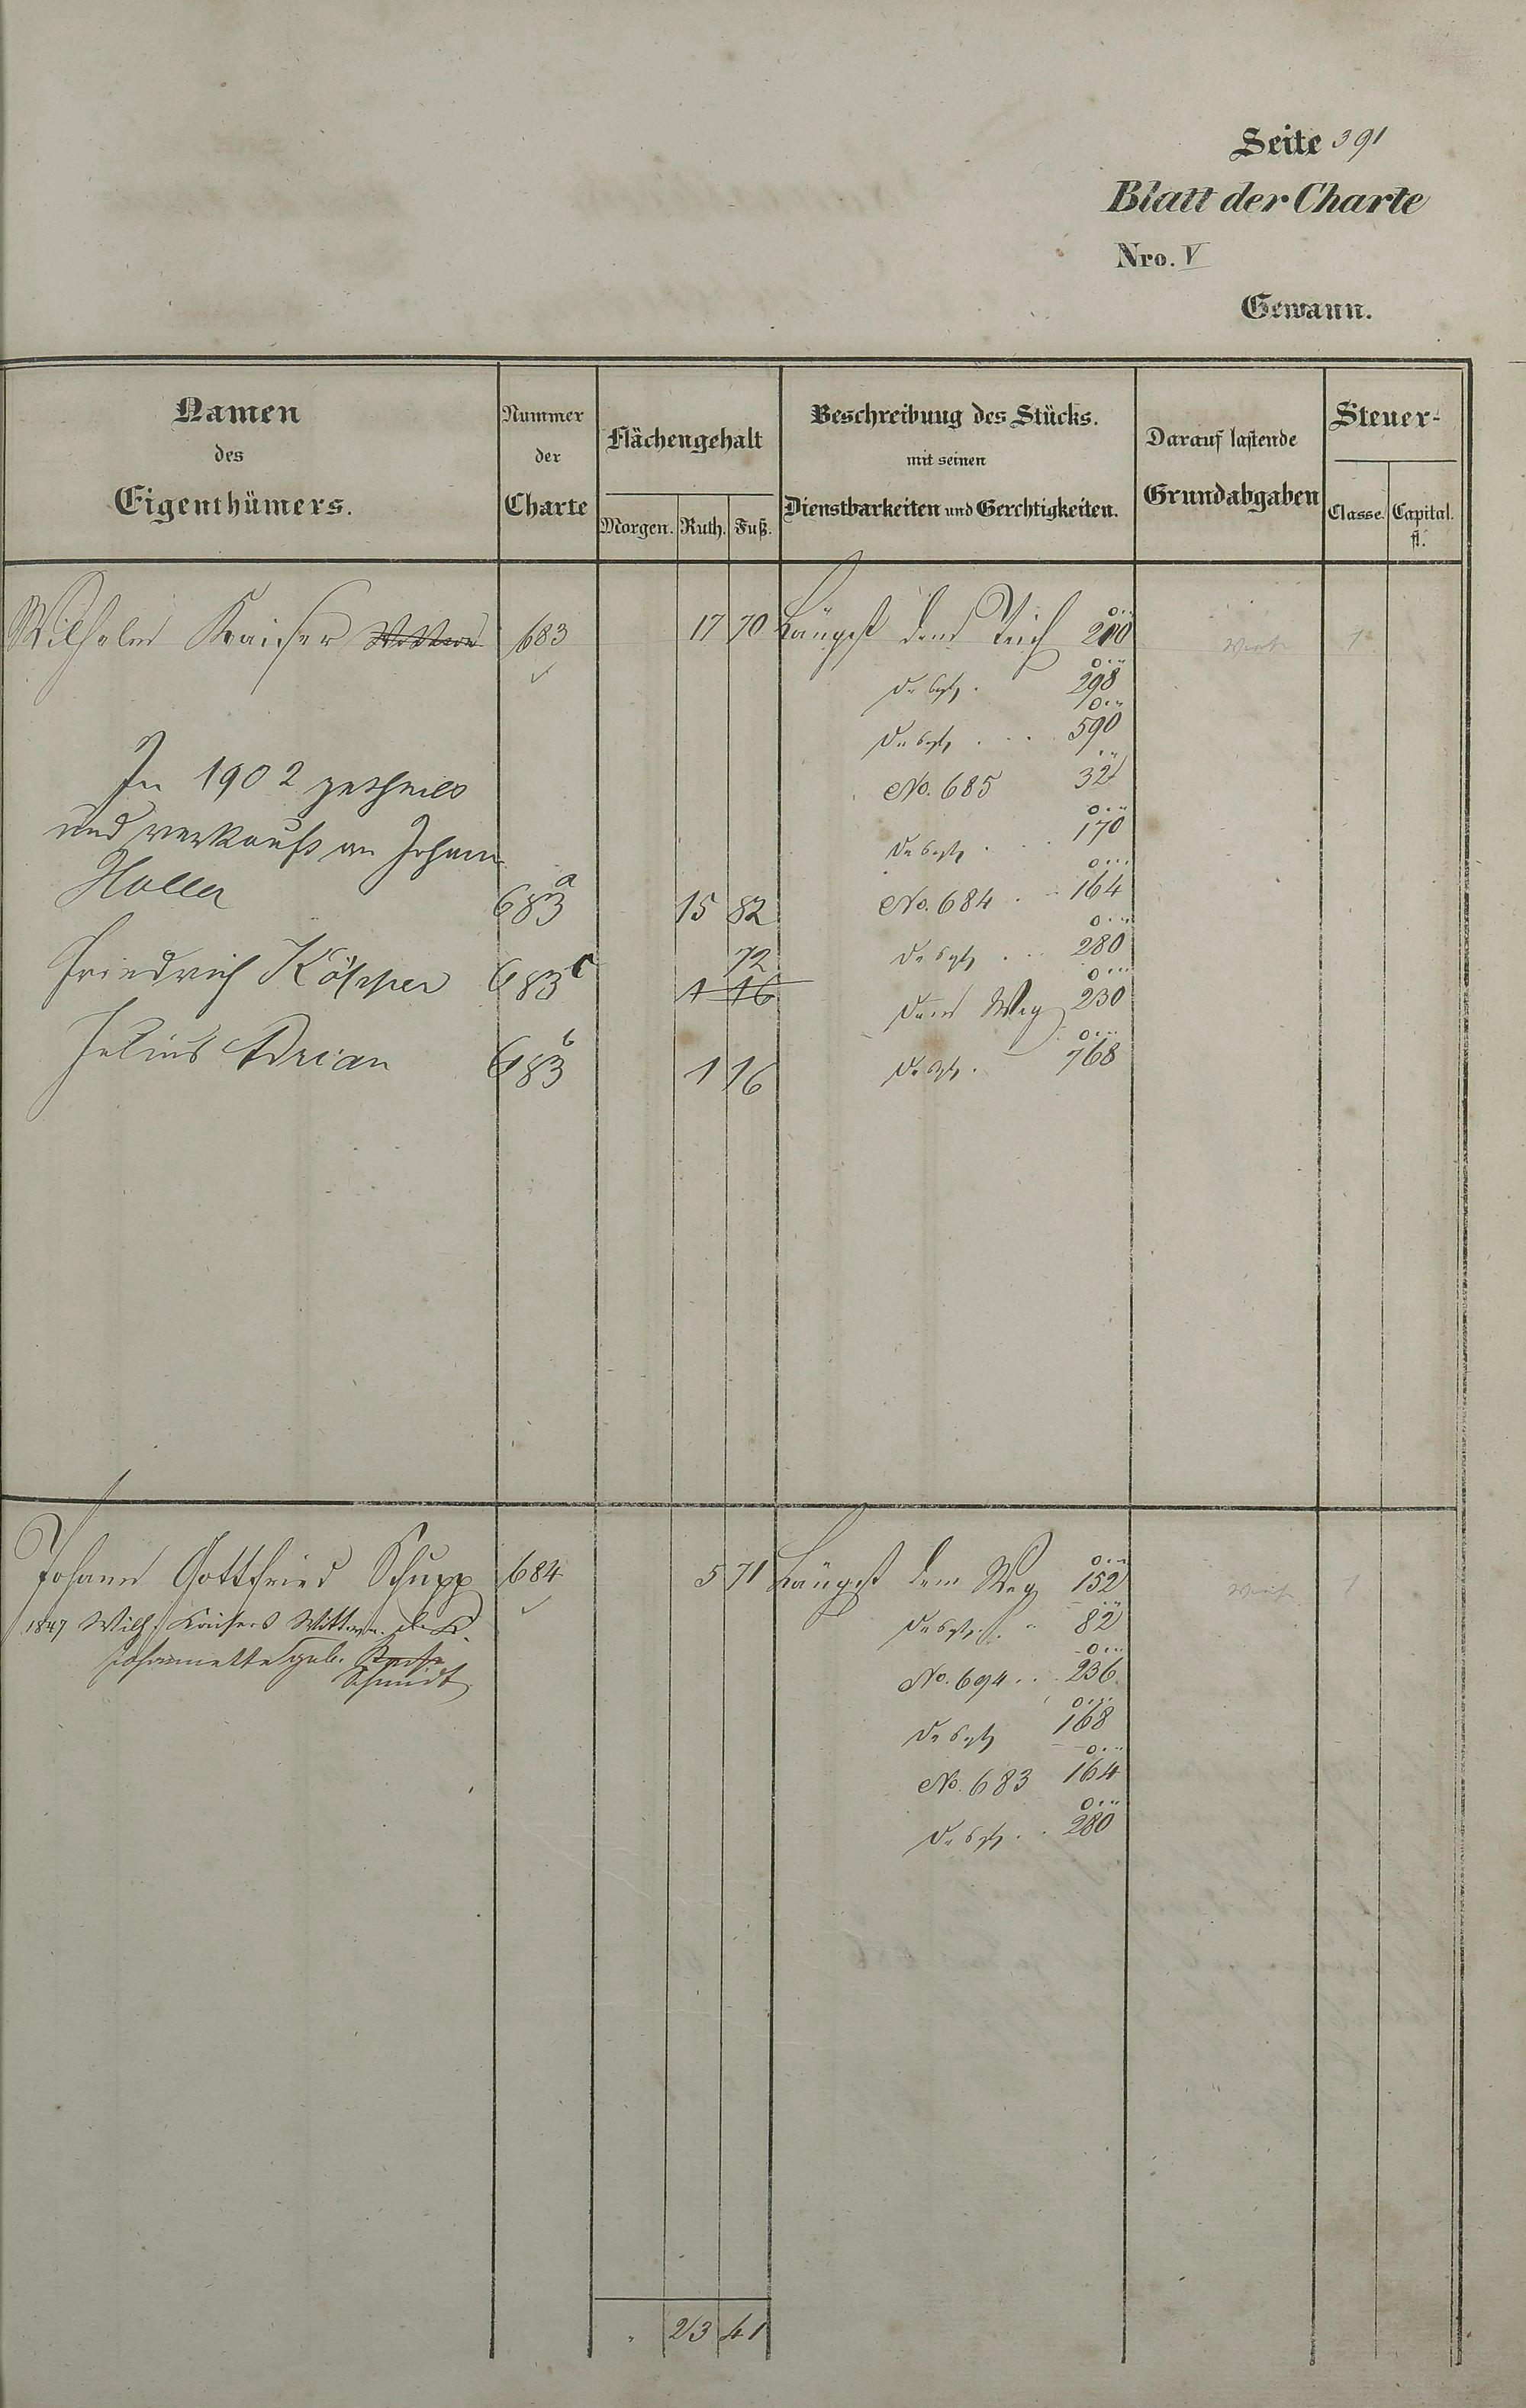 Seite 391
Blatt der Charte
Nro. V
Gewann.
Namen
des
Eigenthümers.
Nummer
der
Charte
Flächengehalt
Morgen. Ruth. Fuß.
Beschreibung des Stücks.
mit seinen
Dienstbarkeiten und Gerchtigkeiten.
Darauf lastende
Grundabgaben
Steuer-
Classe. Capital.
fl.
Wilhelm Kaiser 683 17 70 Längst dem Teich 210
desgl. 298
desgl. 590
In 1902 getheilt No. 685 32
und verkauft an Johann desgl. 170
Holler 683 a 15 82 No. 684 164
72 desgl. 280
Friedrich Köpper 683 c 1 16 dem Weg 230
Julius Adrian 683 b 1 16 desgl. 768
Johann Gottfried Schupp 684 5 71 Längst dem Weg 152
1847 Wilh. Kaisers Wittwe desgl. 82
Johannette geb. No. 694 236
Schmidt
desgl. 168
No. 683 164
desgl. 280
23 41